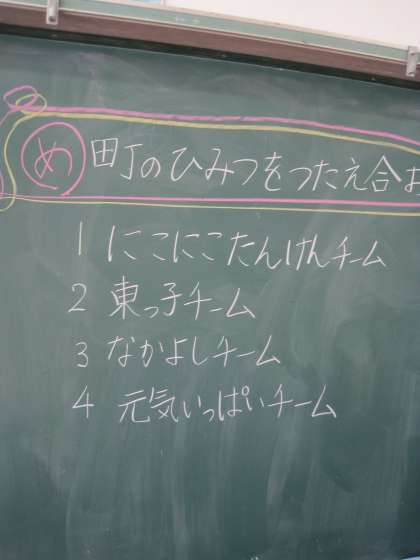 め 町のひみつをつたえ合お
1 にこにこたんけんチーム
2 東っ子チーム
3 なかよしチーム
4 元気いっぱいチーム